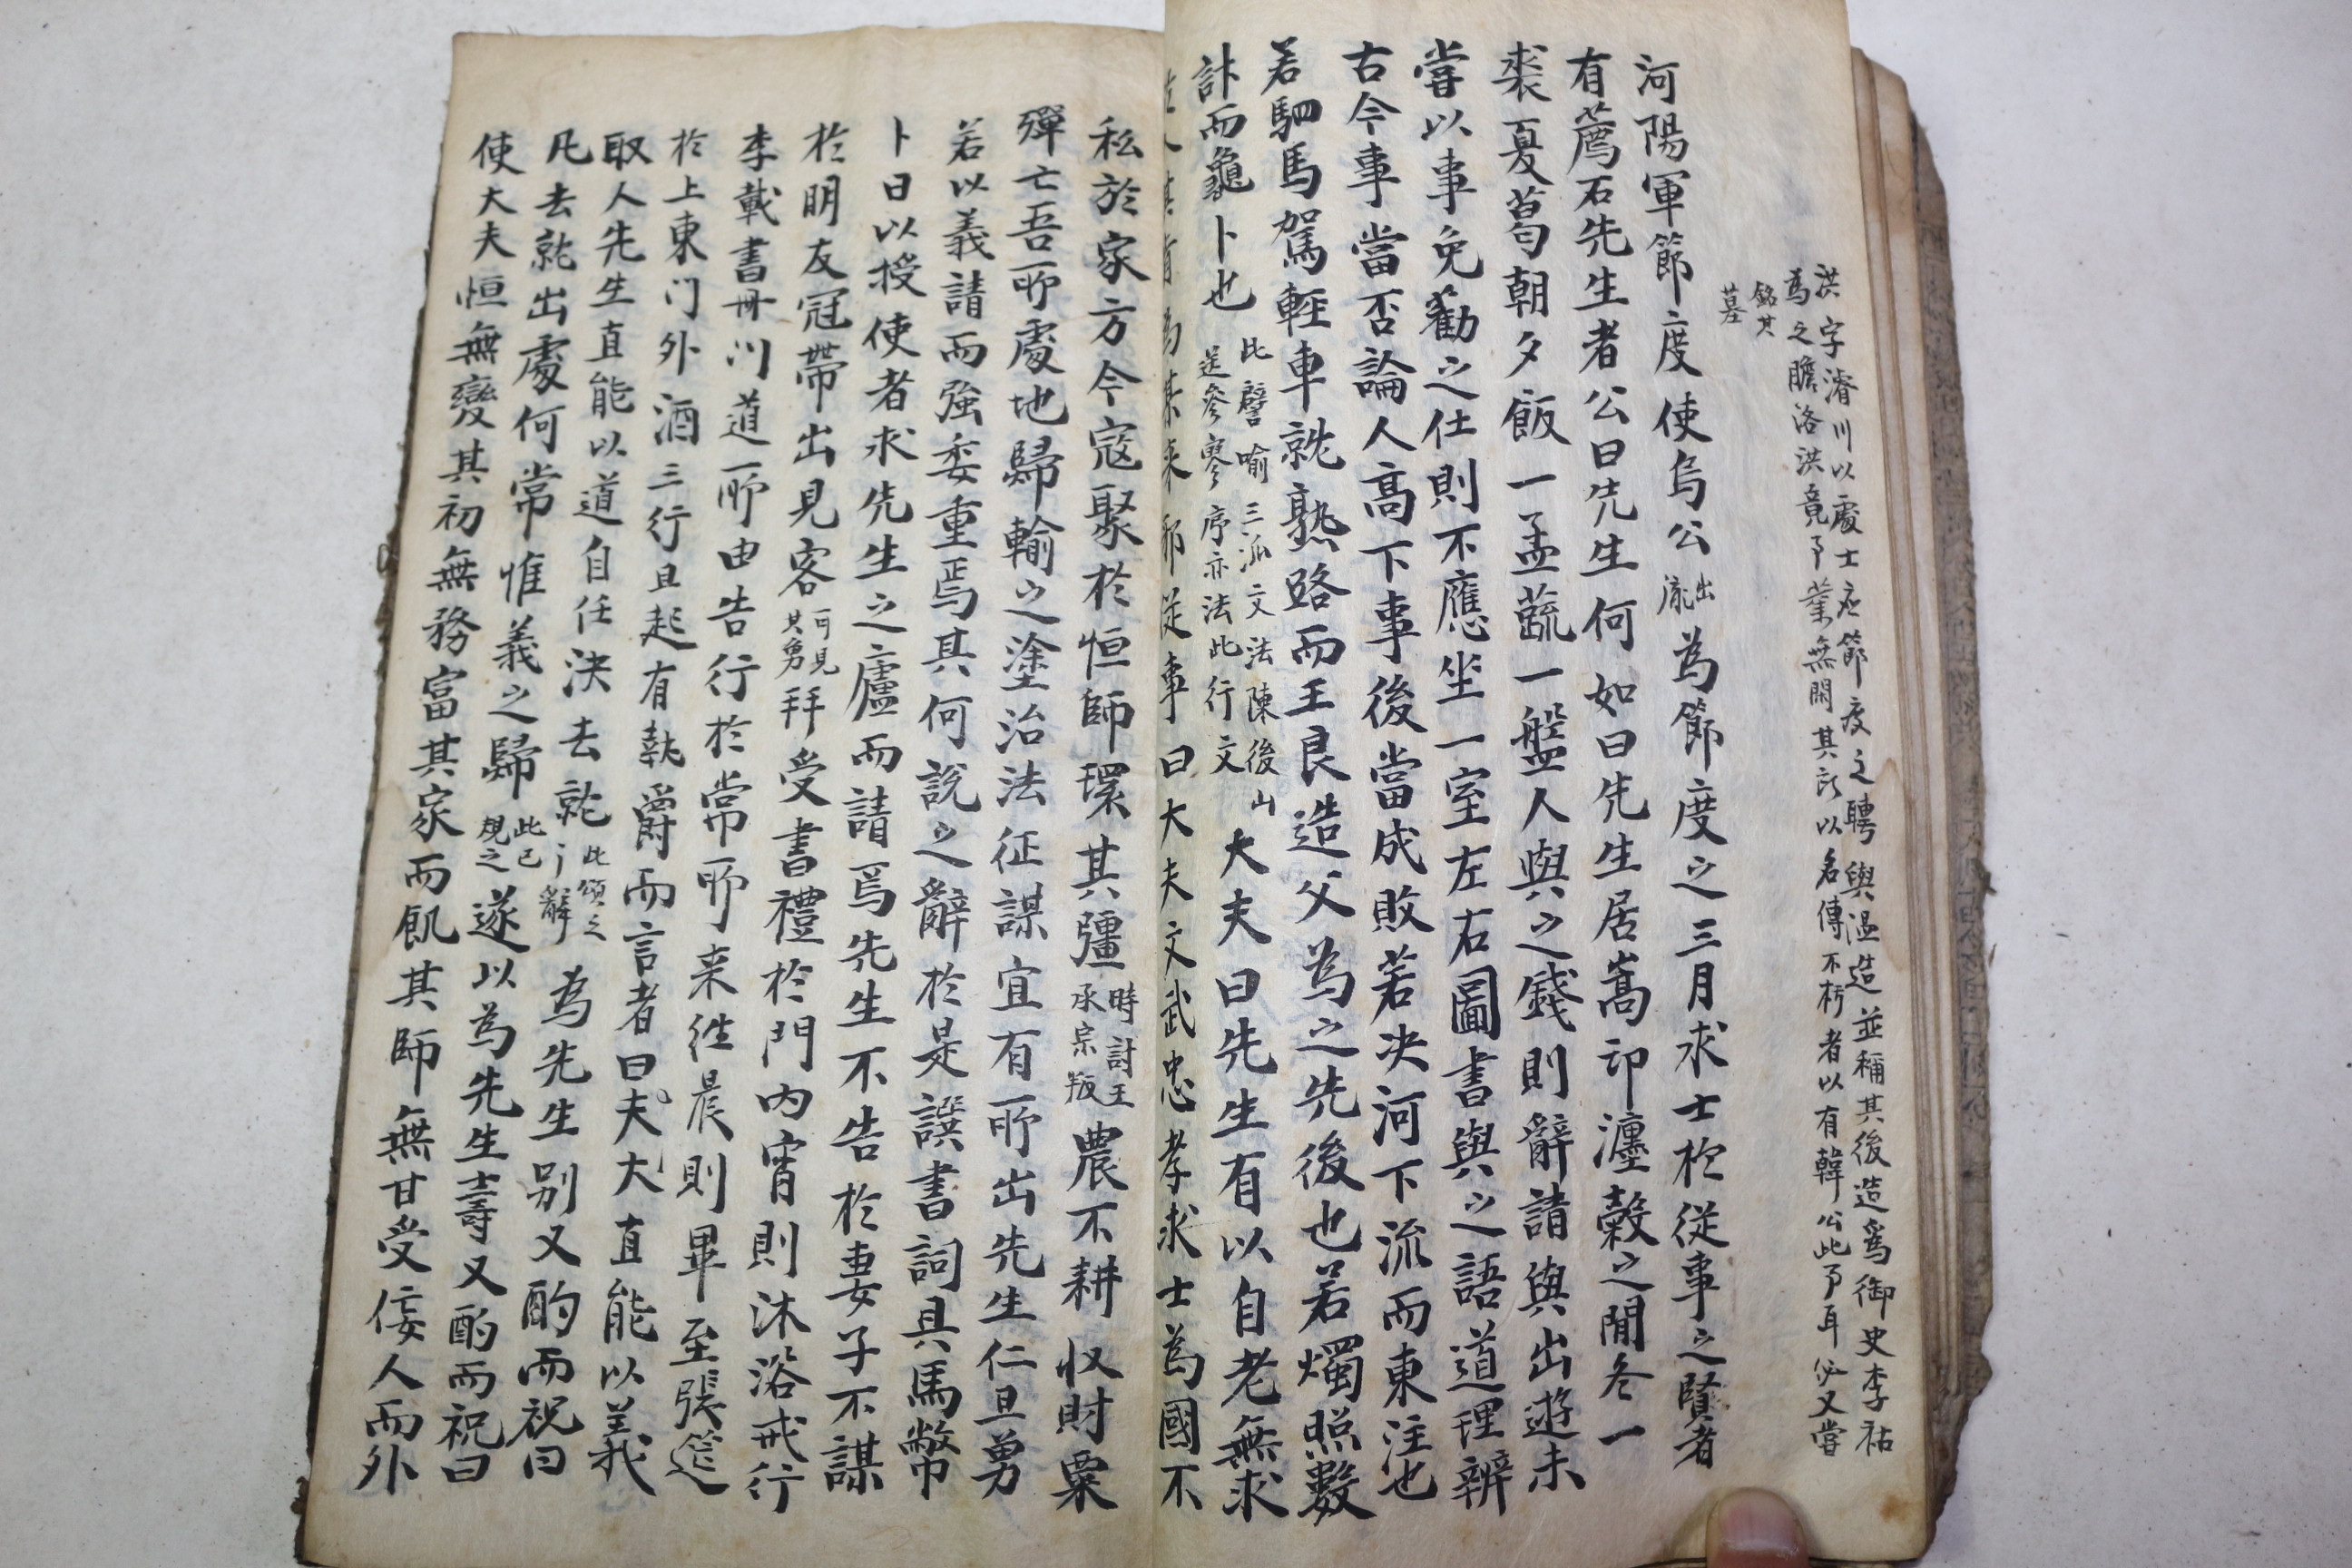 洪字濬川以處士应節度之聘與温造並稱其後造爲御史李祐
為之膽洛洪竟予業無聞其所以名傳不朽者以有韓公此予耳必又嘗
銘其
墓
河陽軍節度使烏公出為節度之三月求士於從事之賢者
有薦石先生者公曰先生何如曰先生居嵩邙瀍穀之間冬一
裘夏葛朝夕飯一盂蔬一盤人與之錢則辭請與出遊未
嘗以事免勸之仕則不應坐一室左右圖書與之語道理辨
古今事當否論人高下事後當成敗若决河下流而東注也
若駟馬駕輕車就熟路而王良造父為之先後也若燭照數
計而龜卜也此譬喻三派文法陳後山
送參寥序亦法此行文大夫曰先生有以自老無求
為某来邪從事曰大夫文武忠孝求士為國不
私於家方今寇聚於恒師環其疆時討王
承宗叛農不耕收財粟
殫亡吾所處地歸輸之塗治法征謀宜有所出先生仁且勇
若以義請而強委重焉其何說之辭於是譔書詞具馬幣
卜日以授使者求先生之廬而請焉先生不告於妻子不謀
於朋友冠帶出見客可見
其勇拜受書禮於門内宵則沐浴戒行
李載書冊川道所由告行於常所来徃晨則畢至張筵
於上東门外酒三行且起有執爵而言者曰夫大直能以義
取人先生直能以道自任决去就此頌之
辭為先生别又酌而祝曰
凡去就出處何常惟義之歸此已
規之遂以為先生壽又酌而祝曰
使大夫恒無變其初無務富其家而飢其師無甘受佞人而外